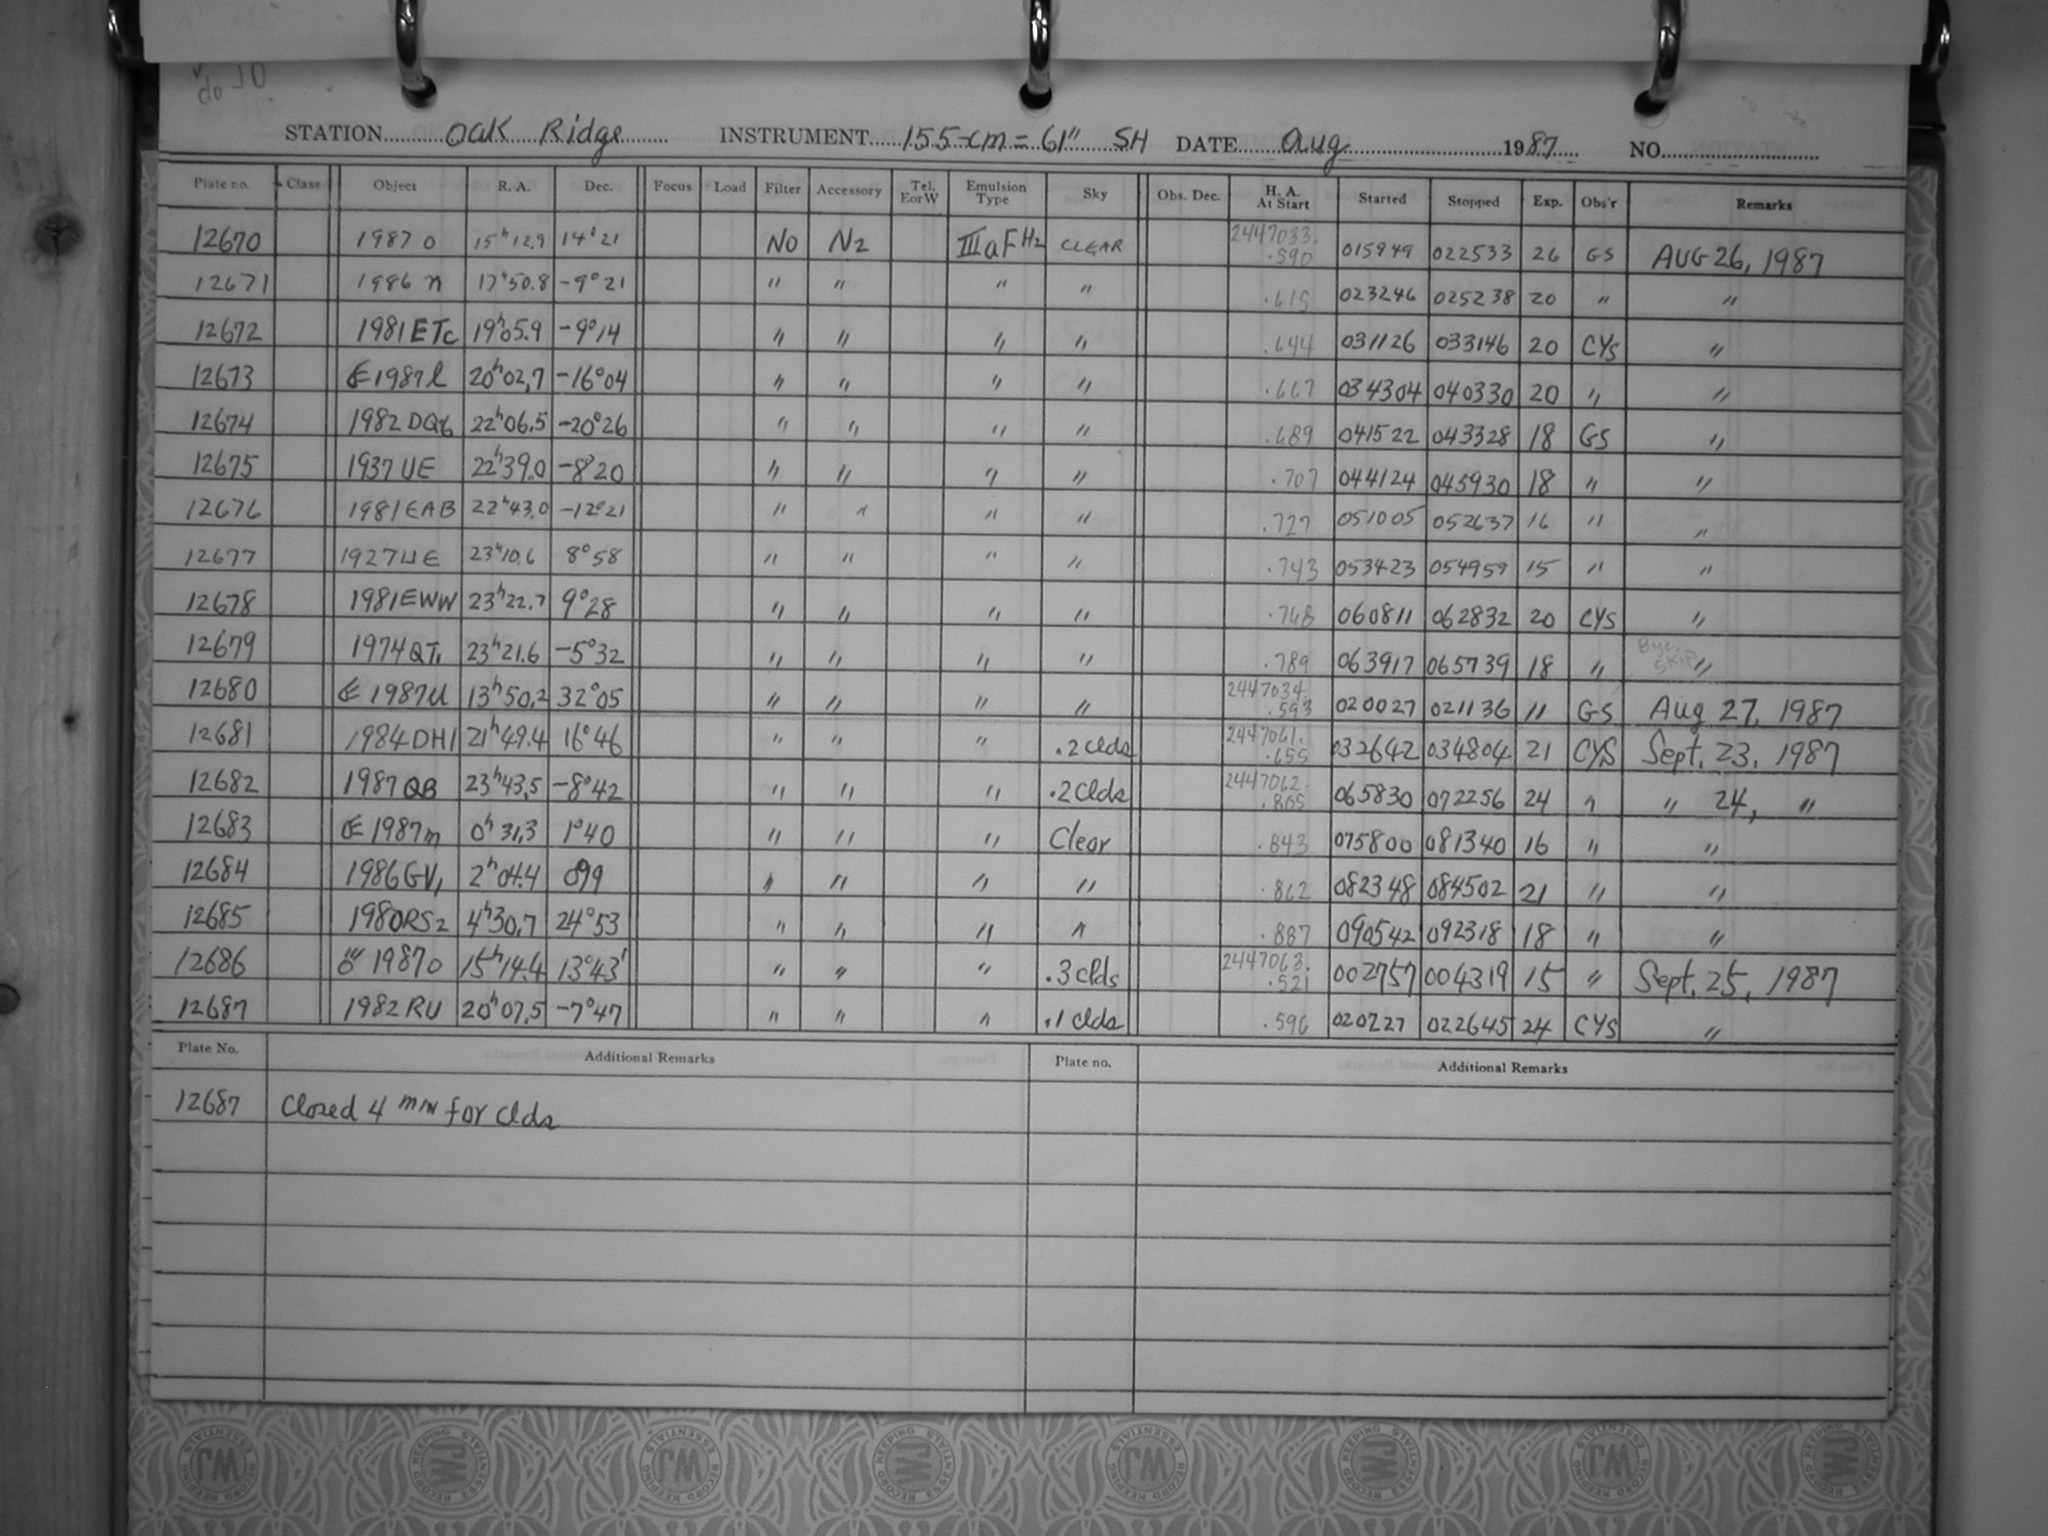 STATION Oak Ridge INSTRUMENT 155-cm = 61" SH DATE Aug 1987 NO.
Plate no. Class Object R. A. Dec. Focus Load Filter Accessory Tel. EorW Emulsion Type Sky Obs. Dec. H. A. At Start Started Stopped Exp. Obs'r Remarks
12670 1987 o 15h12.9 14°21 NO N2 IIIaF H2 CLEAR 2447033. .590 015949 022533 26 GS AUG 26, 1987
12671 1986 n 17h50.8 -9°21 " " " " .615 023246 025238 20 " "
12672 1981 ETc 19h05.9 -9°14 " " " " .644 031126 033146 20 CYS "
12673 1987 l 20h02.7 -16°04 " " " " .667 034304 040330 20 " "
12674 1982 DQ6 22h06.5 -20°26 " " " " .689 041522 043328 18 GS "
12675 1937 UE 22h39.0 -8°20 " " " " .707 044124 045930 18 " "
12676 1981 EAB 22h43.0 -12°21 " " " " .727 051005 052637 16 " "
12677 1927 UE 23h10.6 8°58 " " " " .743 053423 054959 15 " "
12678 1981 EWW 23h22.7 9°28 " " " " .768 060811 062832 20 CYS "
12679 1974 QT1 23h21.6 -5°32 " " " " .789 063917 065739 18 " "
12680 1987 U 13h50.2 32°05 " " " " 2447034. .593 020027 021136 11 GS Aug 27, 1987
12681 1984 DH1 21h49.4 16°46 " " " .2 clds 2447061. .655 032642 034804 21 CYS Sept. 23, 1987
12682 1987 QB 23h43.5 -8°42 " " " .2 clds 2447062. .805 065830 072256 24 " " 24, "
12683 1987 m 0h31.3 1°40 " " " Clear .843 075800 081340 16 " "
12684 1986 GV1 2h04.4 099 " " " " .862 082348 084502 21 " "
12685 1980 RS2 4h30.7 24°53 " " " " .887 090542 092318 18 " "
12686 1987 o 15h14.4 13°43' " " " .3 clds 2447063. .521 002757 004319 15 " Sept. 25, 1987
12687 1982 RU 20h07.5 -7°47 " " " .1 clds .596 020227 022645 24 CYS "
Plate No. Additional Remarks Plate no. Additional Remarks
12687 Closed 4 min for clds